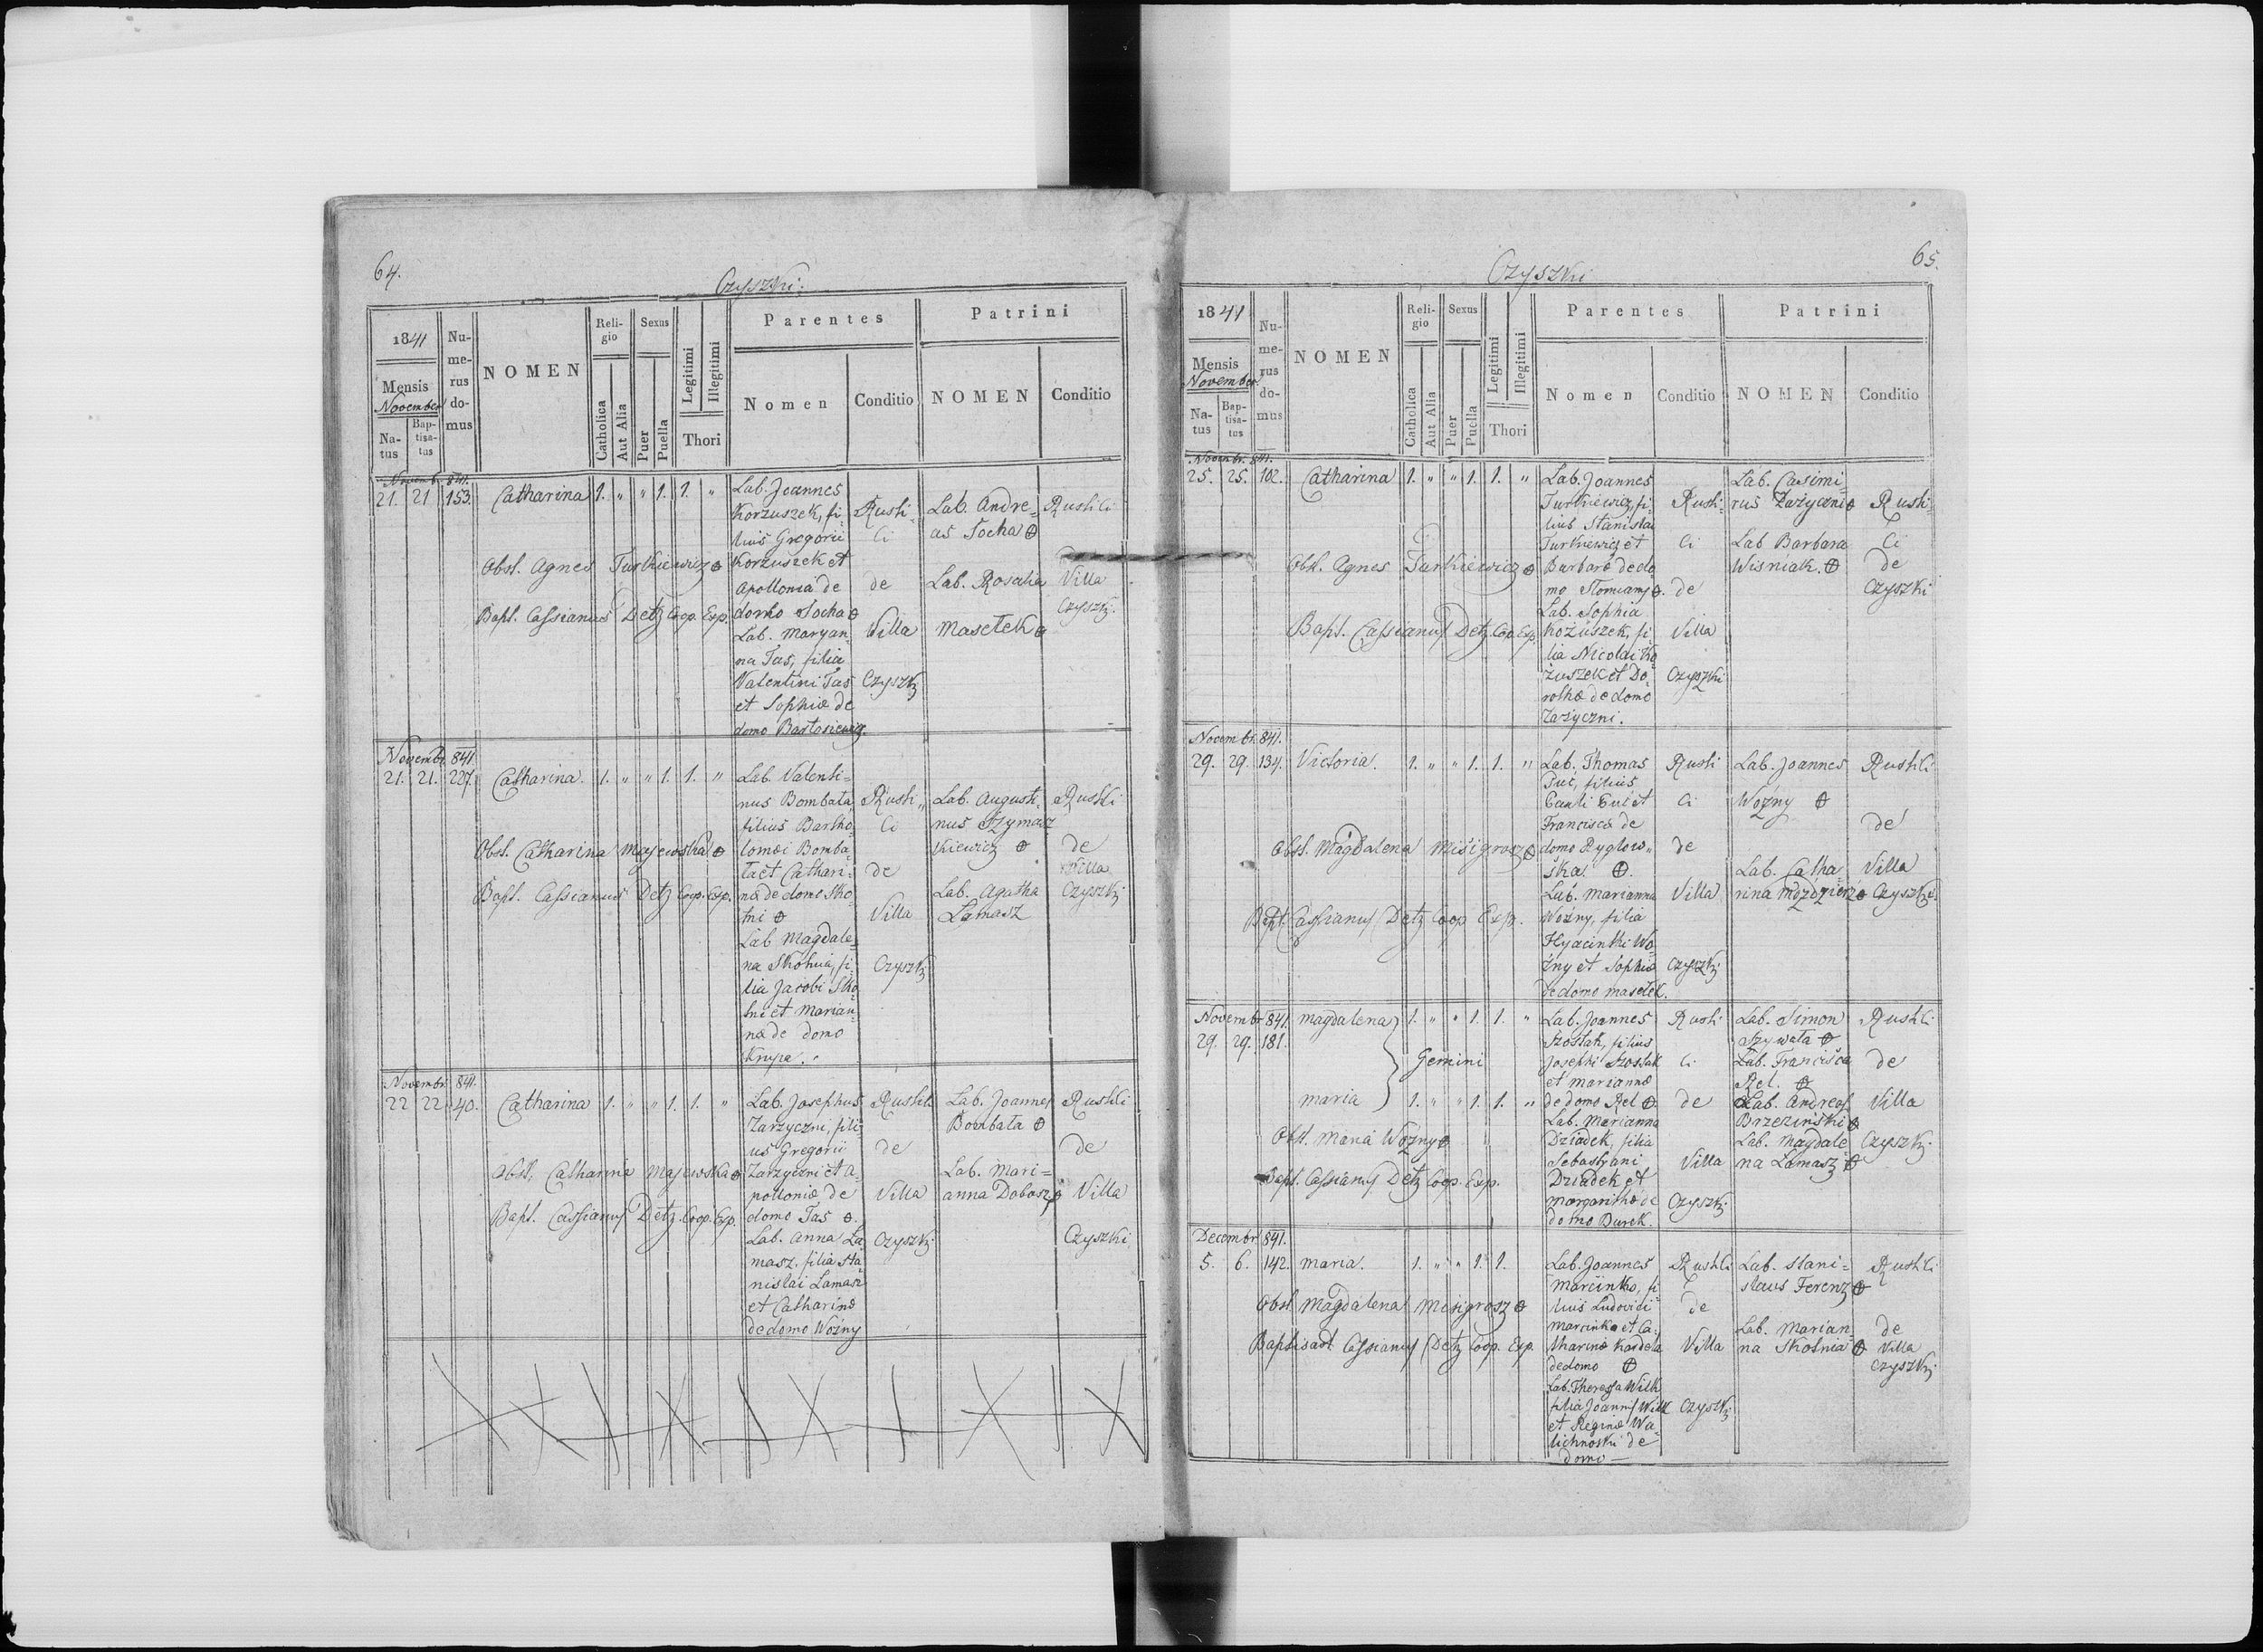 64.
Czyszki.
1841
Mensis
November
Na-
tus
Bap-
tisa-
tus
Nu-
me-
rus
do-
mus
NOMEN
Reli-
gio
Catholica
Aut Alia
Sexus
Puer
Puella
Legitimi
Illegitimi
Thori
Parentes
Nomen
Conditio
Patrini
NOMEN
Conditio
Novembr. 841.
21. 21 153. Catharina 1. „ „ 1. 1. „
Obst. Agnes Turkiewicz ⊕
Bapt. Cassianus Detz Coop. Exp.
Lab. Joannes
Korzuszek, fi-
lius Gregorii
Korzuszek et
Apollonia de
domo Socha ⊕
Lab. Maryan
na Tas, filia
Valentini Tas
et Sophiæ de
domo Bartosiewicz.
Rusti-
ci
de
Villa
Czyszki
Lab. Andre-
as Socha ⊕
Lab. Rosalia
Masełek ⊕
Rustici
Villa
Czyszki.
Novembr. 841
21. 21. 227. Catharina. 1. „ „ 1. 1. „
Obst. Catharina Majewska ⊕
Bapt. Cassianus Detz Coop. Exp.
Lab. Valenti-
nus Bombała
filius Bartho-
lomæi Bomba-
ła et Cathari-
næ de domo Sko-
lni ⊕
Lab Magdale-
na Skolnia, fi-
lia Jacobi Sko-
lni et Marian-
næ de domo
Krupa.
Rusti„
ci
de
Villa
Czyszki
Lab. Augusti-
nus Szymasz
kiewicz ⊕
Lab. Agatha
Łamasz
Rustici
de
Villa
Czyszki
Novembr. 841.
22 22 40. Catharina 1. „ „ 1. 1. „
Obst. Catharina Majewska ⊕
Bapt. Cassianus Detz. Coop. Exp.
Lab. Josephus
Zarzyczni, fili-
us Gregorii
Zarzyczni et A-
polloniæ de
domo Tas ⊕.
Lab. Anna Ła
masz. filia Sta-
nislai Łamasz
et Catharinæ
de domo Woźny
Rustici
de
Villa
Czyszki
Lab. Joannes
Bombała ⊕
Lab. Mari-
anna Dobosz ⊕
Rustici
de
Villa
Czyszki
65.
Czyszki
1841
Mensis
November
Na-
tus
Bap-
tisa-
tus
Nu-
me-
rus
do-
mus
NOMEN
Reli-
gio
Catholica
Aut Alia
Sexus
Puer
Puella
Legitimi
Illegitimi
Thori
Parentes
Nomen
Conditio
Patrini
NOMEN
Conditio
Novembr. 841.
25. 25. 102. Catharina 1. „ „ 1. 1. „
Obst. Agnes Turkiewicz ⊕
Bapt. Cassianus Detz. Coo. Exp.
Lab. Joannes
Turkiewicz, fi-
lius Stanislai
Turkiewicz et
Barbaræ de do
mo Słomiany ⊕.
Lab. Sophia
Kożuszek, fi-
lia Nicolai Ko
żuszek et Do-
rothæ de domo
Zażyczni.
Rusti-
ci
de
Villa
Czyszki
Lab. Casimi-
rus Zażyczni ⊕
Lab Barbara
Wiśniak. ⊕
Rusti-
ci
de
Czyszki
Novembr. 841.
29. 29. 134. Victoria. 1. „ „ 1. 1. „
Obst. Magdalena Misigrosz ⊕
Bapt. Cassianus Detz Coop Exp.
Lab. Thomas
filius
Francisca de
domo Rygłow„
ska. ⊕.
Lab. Marianna
Woźny, filia
Hyacinthi Wo-
źny et Sophiæ
de domo Masełek.
Rusti
ci
de
Villa
Czyszki
Lab. Joannes
Woźny ⊕
Lab. Catha-
rina Możdzierz ⊕
Rustici
de
Villa
Czyszki
Novembr 841.
29. 29. 181.
Magdalena 1. „ „ 1. 1. „
Gemini
Maria 1. „ „ 1. 1. „
Obst. Maria Woźny ⊕
Bapt. Cassianus Detz Coop. Exp.
Lab. Joannes
Szostak, filius
Josephi Szostak
et Mariannæ
de domo Rel ⊕.
Lab. Marianna
Dziadek, filia
Sebastyani
Dziadek et
Margarithæ de
domo Burek.
Rusti
ci
de
Villa
Czyszki
Lab. Simon
Szywała ⊕
Lab. Francisca
Rel. ⊕
Lab. Andreas
Brzezinski ⊕
Lab. Magdale
na Łamasz ⊕
Rustici
de
Villa
Czyszki.
Decembr 841.
5. 6. 142. Maria. 1. „ „ 1. 1.
Obst Magdalena Misigrosz ⊕
Baptisavit Cassianus Detz Coop. Exp.
Lab. Joannes
Marcinko, fi
lius Ludovici
Marcinko et Ca-
tharinæ Kardela
de domo ⊕
Lab. Theressa Wilk
filia Joannis Wilk
et Reginæ Wa-
lichnoski de
domo —
Rustici
de
Villa
Czyszki
Lab. Stani-
slaus Ferenz ⊕
Lab. Marian-
na Skolnia ⊕
Rustici
de
Villa
Czyszki